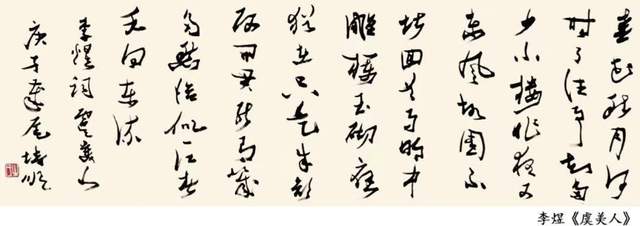 春花秋月何
时了往事知多
少小楼昨夜又
东风故国不
堪回首月明中
雕栏玉砌应
犹在只是朱颜
改问君能有几
多愁恰似一江春
水向东流
李煜词虞美人
庚子年尾
李煜《虞美人》